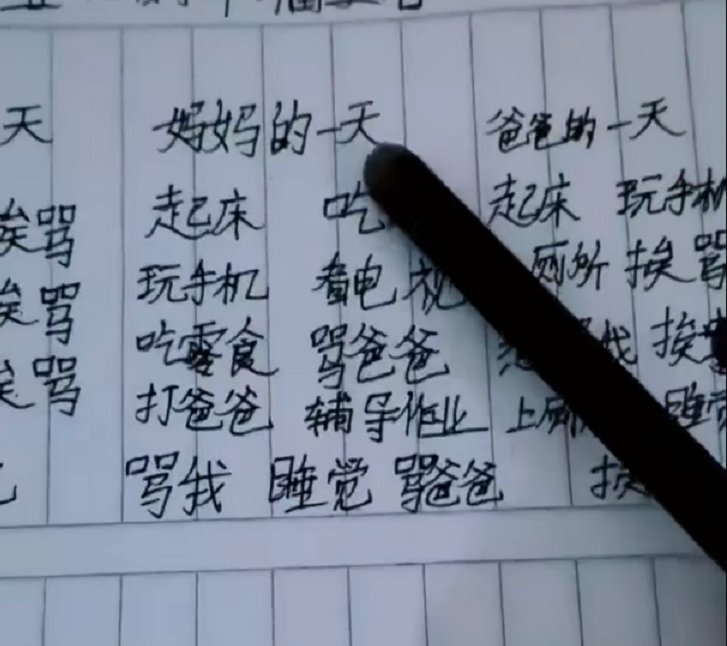 天 妈妈的一天 爸爸的一天
挨骂 起床 吃 起床 玩手机
挨骂 玩手机 看电视 厕所 挨骂
挨骂 吃零食 骂爸爸 找 挨
打爸爸 辅导作业 上厕 睡觉
骂我 睡觉 骂爸爸 挨